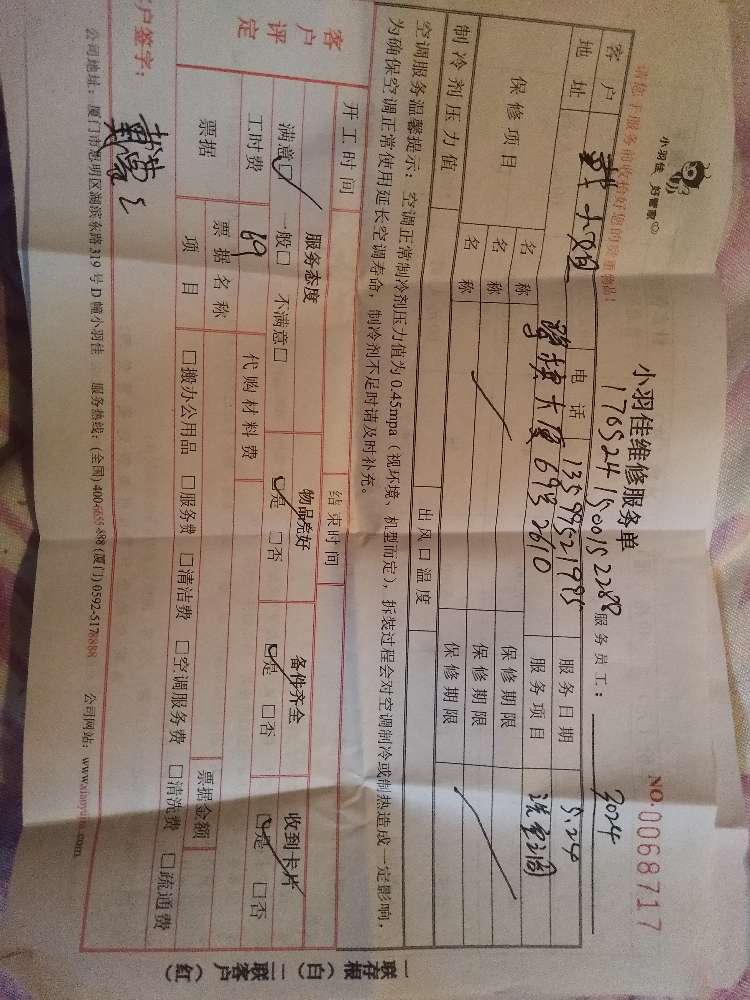 小羽佳，好管家
请您于服务前收拾好您的贵重物品！
小羽佳维修服务单
NO.0068717
17052415001S2288
服务员工： 3024
客户 戴小姐 电话 13599521995 服务日期 5.24
地址 大厦693 2610 服务项目 洗空调
保修项目 名称 保修期限
名称 保修期限
制冷剂压力值 名称 保修期限
出风口温度
空调服务温馨提示：空调正常制冷剂压力值为0.45mpa（视环境、机型而定），拆装过程会对空调制冷或制热造成一定影响，
为确保空调正常使用延长空调寿命，制冷剂不足时请及时补充。
开工时间 结束时间
客户评定 服务态度 物品完好 备件齐全 收到卡片
满意☑ 一般□ 不满意□ ☑是 □否 ☑是 □否 ☑是 □否
工时费 69 代购材料费
票据 票据名称 票据金额
项目 □搬办公用品 □服务费 □清洁费 □空调服务费 □清洗费 □疏通费
户签字：
公司地址：厦门市思明区湖滨东路319号D幢小羽佳 服务热线：(全国)400-6655-888 (厦门)0592-5178888 公司网站：
一联存根（白）二联客户（红）